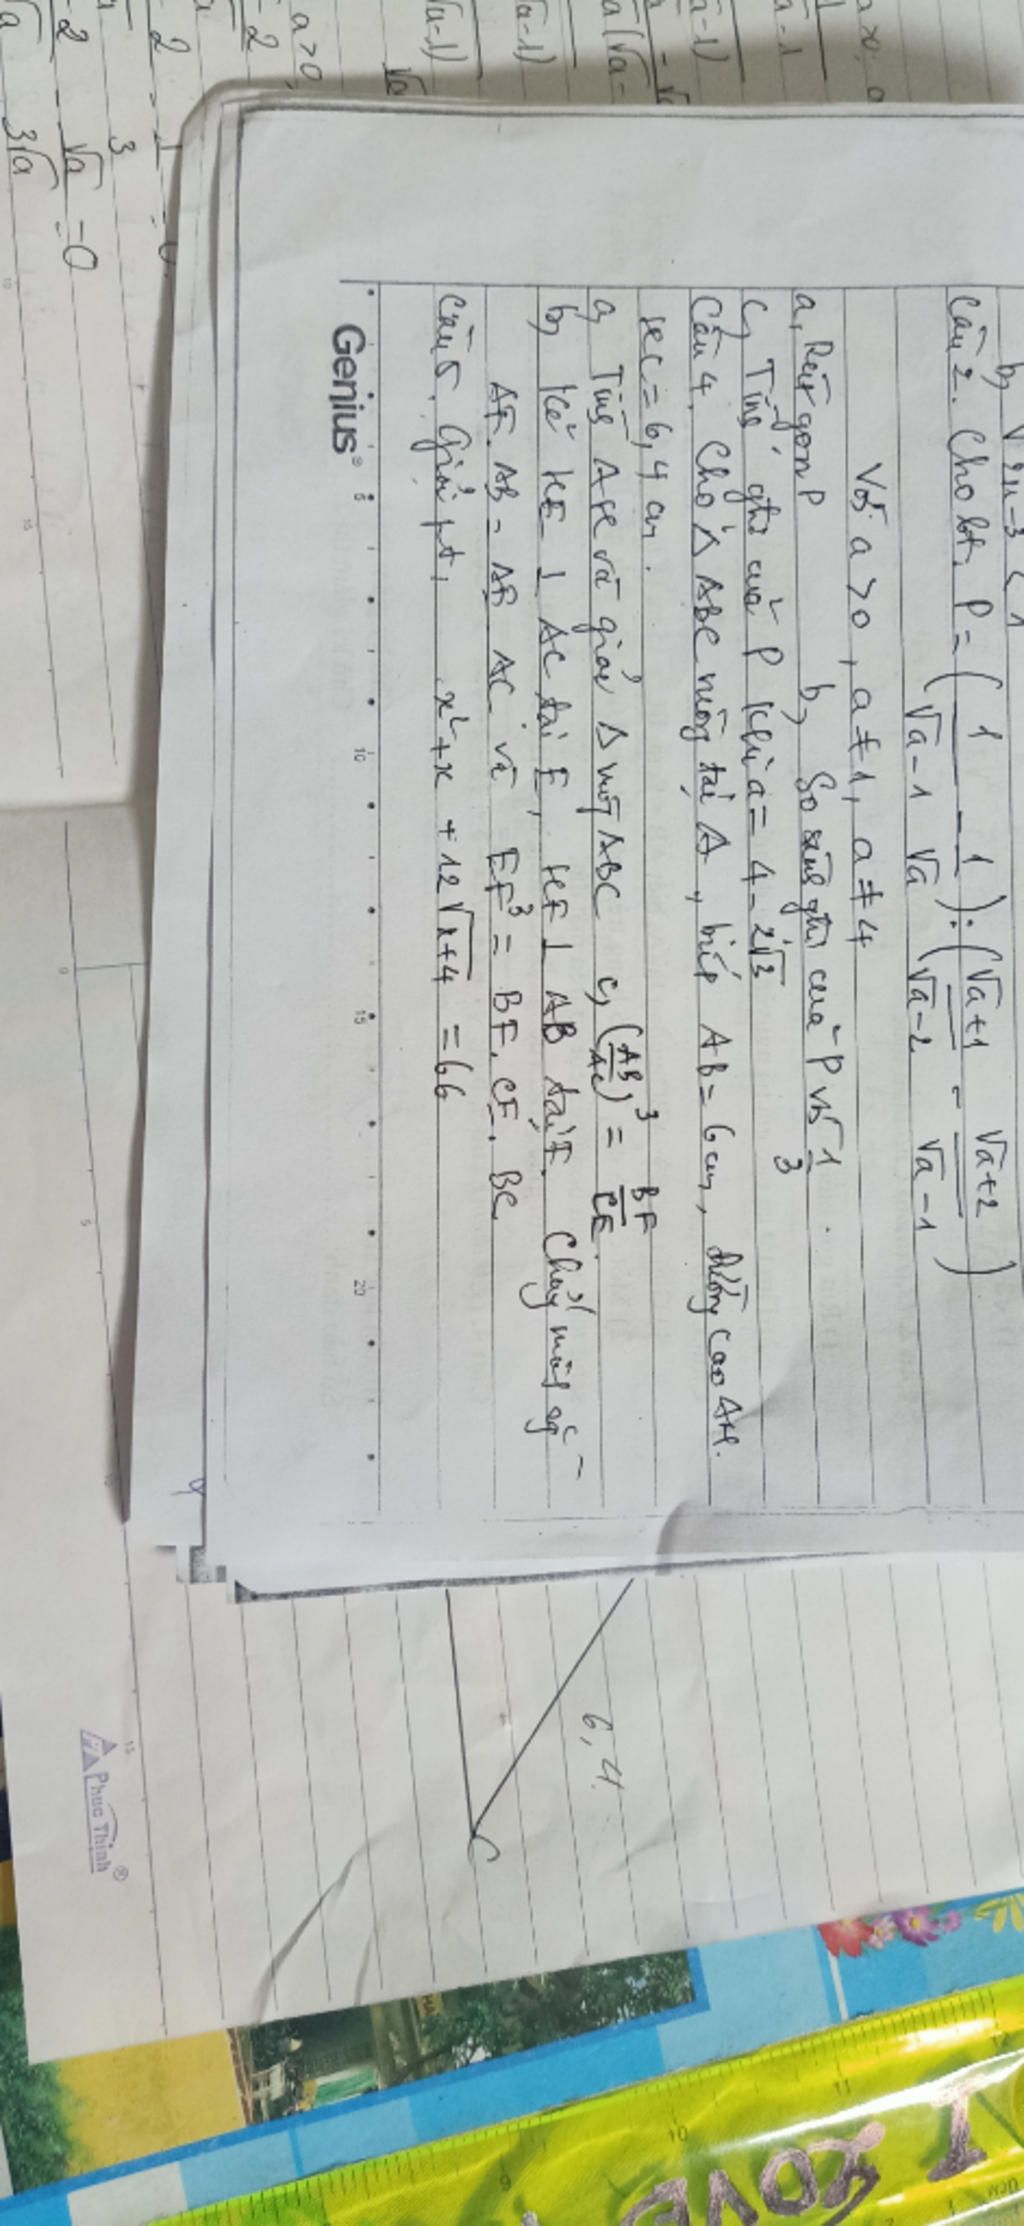 b, √2x-3 < 1
Câu 2. Cho bt, P = ( 1/(√a-1) - 1/√a ) : ( (√a+1)/(√a-2) - (√a+2)/(√a-1) )
Với a > 0, a ≠ 1, a ≠ 4
a, Rút gọn P b, So sánh gtri của P với 1/3.
c, Tính gtri của P khi a = 4 - 2√3
Câu 4. Cho Δ ABC vuông tại A, biết AB = 6 cm, đường cao AH.
HC = 6,4 cm.
a, Tính AH và giải Δ vuông ABC c, (AB/AC)^3 = BF/CE.
b, Kẻ HE ⊥ AC tại E, HF ⊥ AB tại F. Chứng minh
AF. AB = AE AC và EF^3 = BF. CE. BC
Câu 5. Giải pt, x² + x + 12√x+4 = 66
5 10 15 20
Genius®
6,4
C
Phuc Thinh®
I LOVE
9 10 11
a>0,
3
√a = 0
3√a